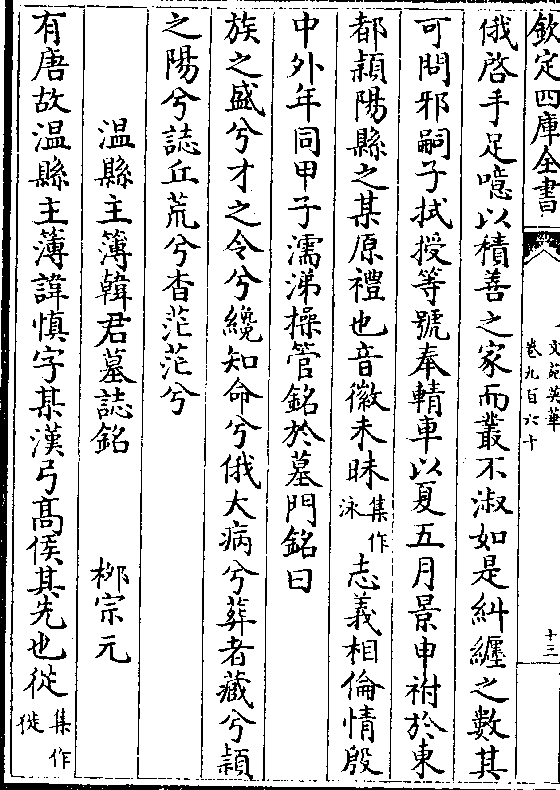 欽定四庫全書
文苑英華
卷九百六十
十三
俄啓手足噫以積善之家而叢不淑如是糾纒之數其
可問邪嗣子拭授等號奉輤車以夏五月景申祔於東
都潁陽縣之某原禮也音徽未昧集作泳志義相倫情殷
中外年同甲子濡涕操管銘於墓門銘曰
族之盛兮才之令兮纔知命兮俄大病兮葬者藏兮潁
之陽兮誌丘荒兮杳茫茫兮
温縣主簿韓君墓誌銘 栁宗元
有唐故温縣主簿諱慎字某漢弓髙侯其先也従集作徙